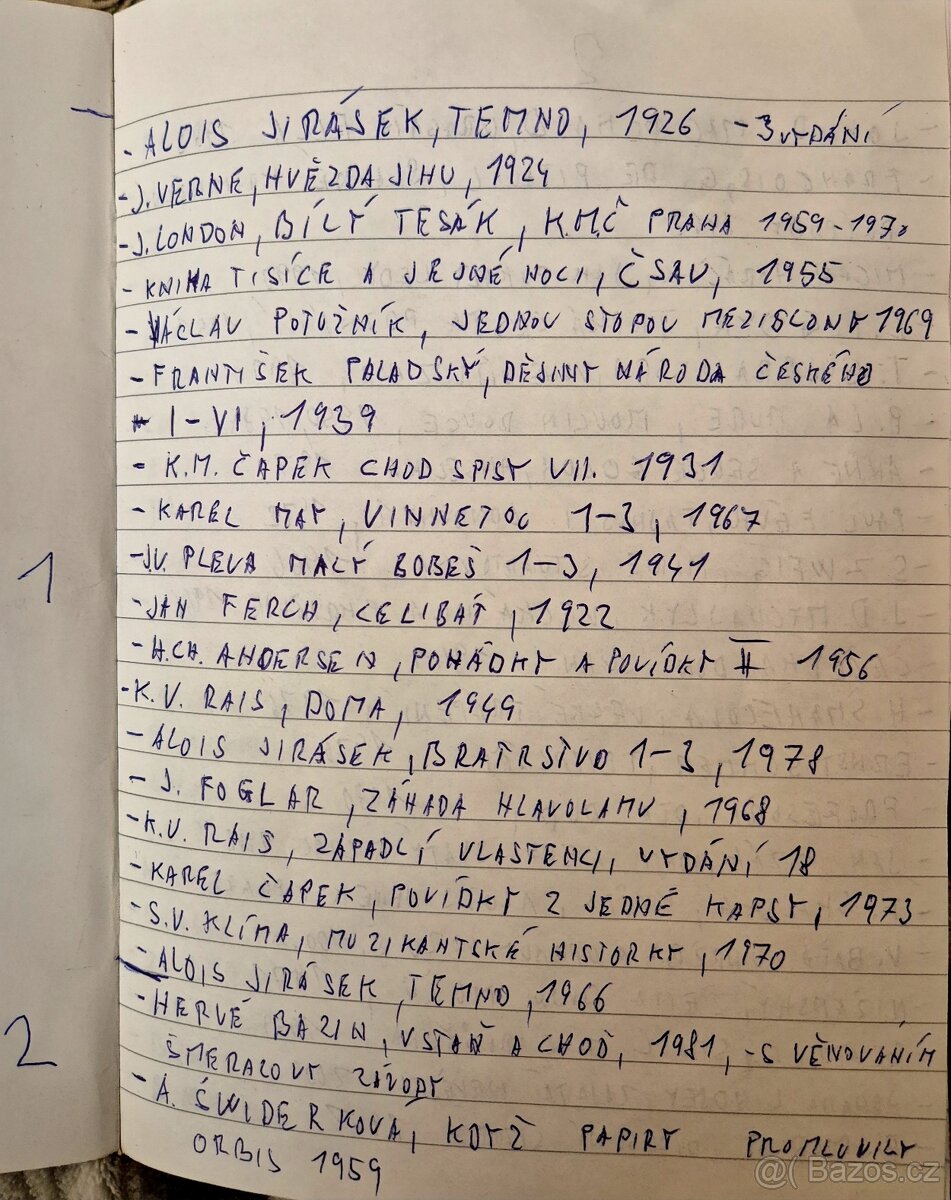 - ALOIS JIRÁSEK, TEMNO, 1926 - 3 VYDÁNÍ
- J. VERNE, HVĚZDA JIHU, 1924
- J. LONDON, BÍLÝ TESÁK, K.M.Č PRAHA 1959-1970
- KNIHA TISÍCE A JEDNÉ NOCI, ČSAV, 1955
- VÁCLAV POTUŽNÍK, JEDNOU STOPOU MEZI SLONY 1969
- FRANTIŠEK PALADSKÝ, DĚJINY NÁRODA ČESKÉHO
- I-VI, 1939
- K.M. ČAPEK CHOD SPISY VII. 1931
- KAREL MAY, VINNETOU 1-3, 1967
- J.V. PLEVA MALÝ BOBEŠ 1-3, 1941
1
- JAN FERCH, CELIBÁT, 1922
- H.CH. ANDERSEN, POHÁDKY A POVÍDKY II 1956
- K.V. RAIS, DOMA, 1949
- ALOIS JIRÁSEK, BRATRSTVO 1-3, 1978
- J. FOGLAR, ZÁHADA HLAVOLAMU, 1968
- K.V. RAIS, ZAPADLÍ VLASTENCI, VYDÁNÍ 18
- KAREL ČAPEK, POVÍDKY Z JEDNÉ KAPSY, 1973
- S.V. KLÍMA, MUZIKANTSKÉ HISTORKY, 1970
- ALOIS JIRÁSEK, TEMNO, 1966
2
- HERVÉ BAZIN, VSTAŇ A CHOĎ, 1981, - S VĚNOVANÍM
ŠMERALOVY ZÁVODY
- A. ŚWIDERKOVÁ, KDYŽ PAPIRY PROMLUVILY
ORBIS 1959
@( Bazos.cz